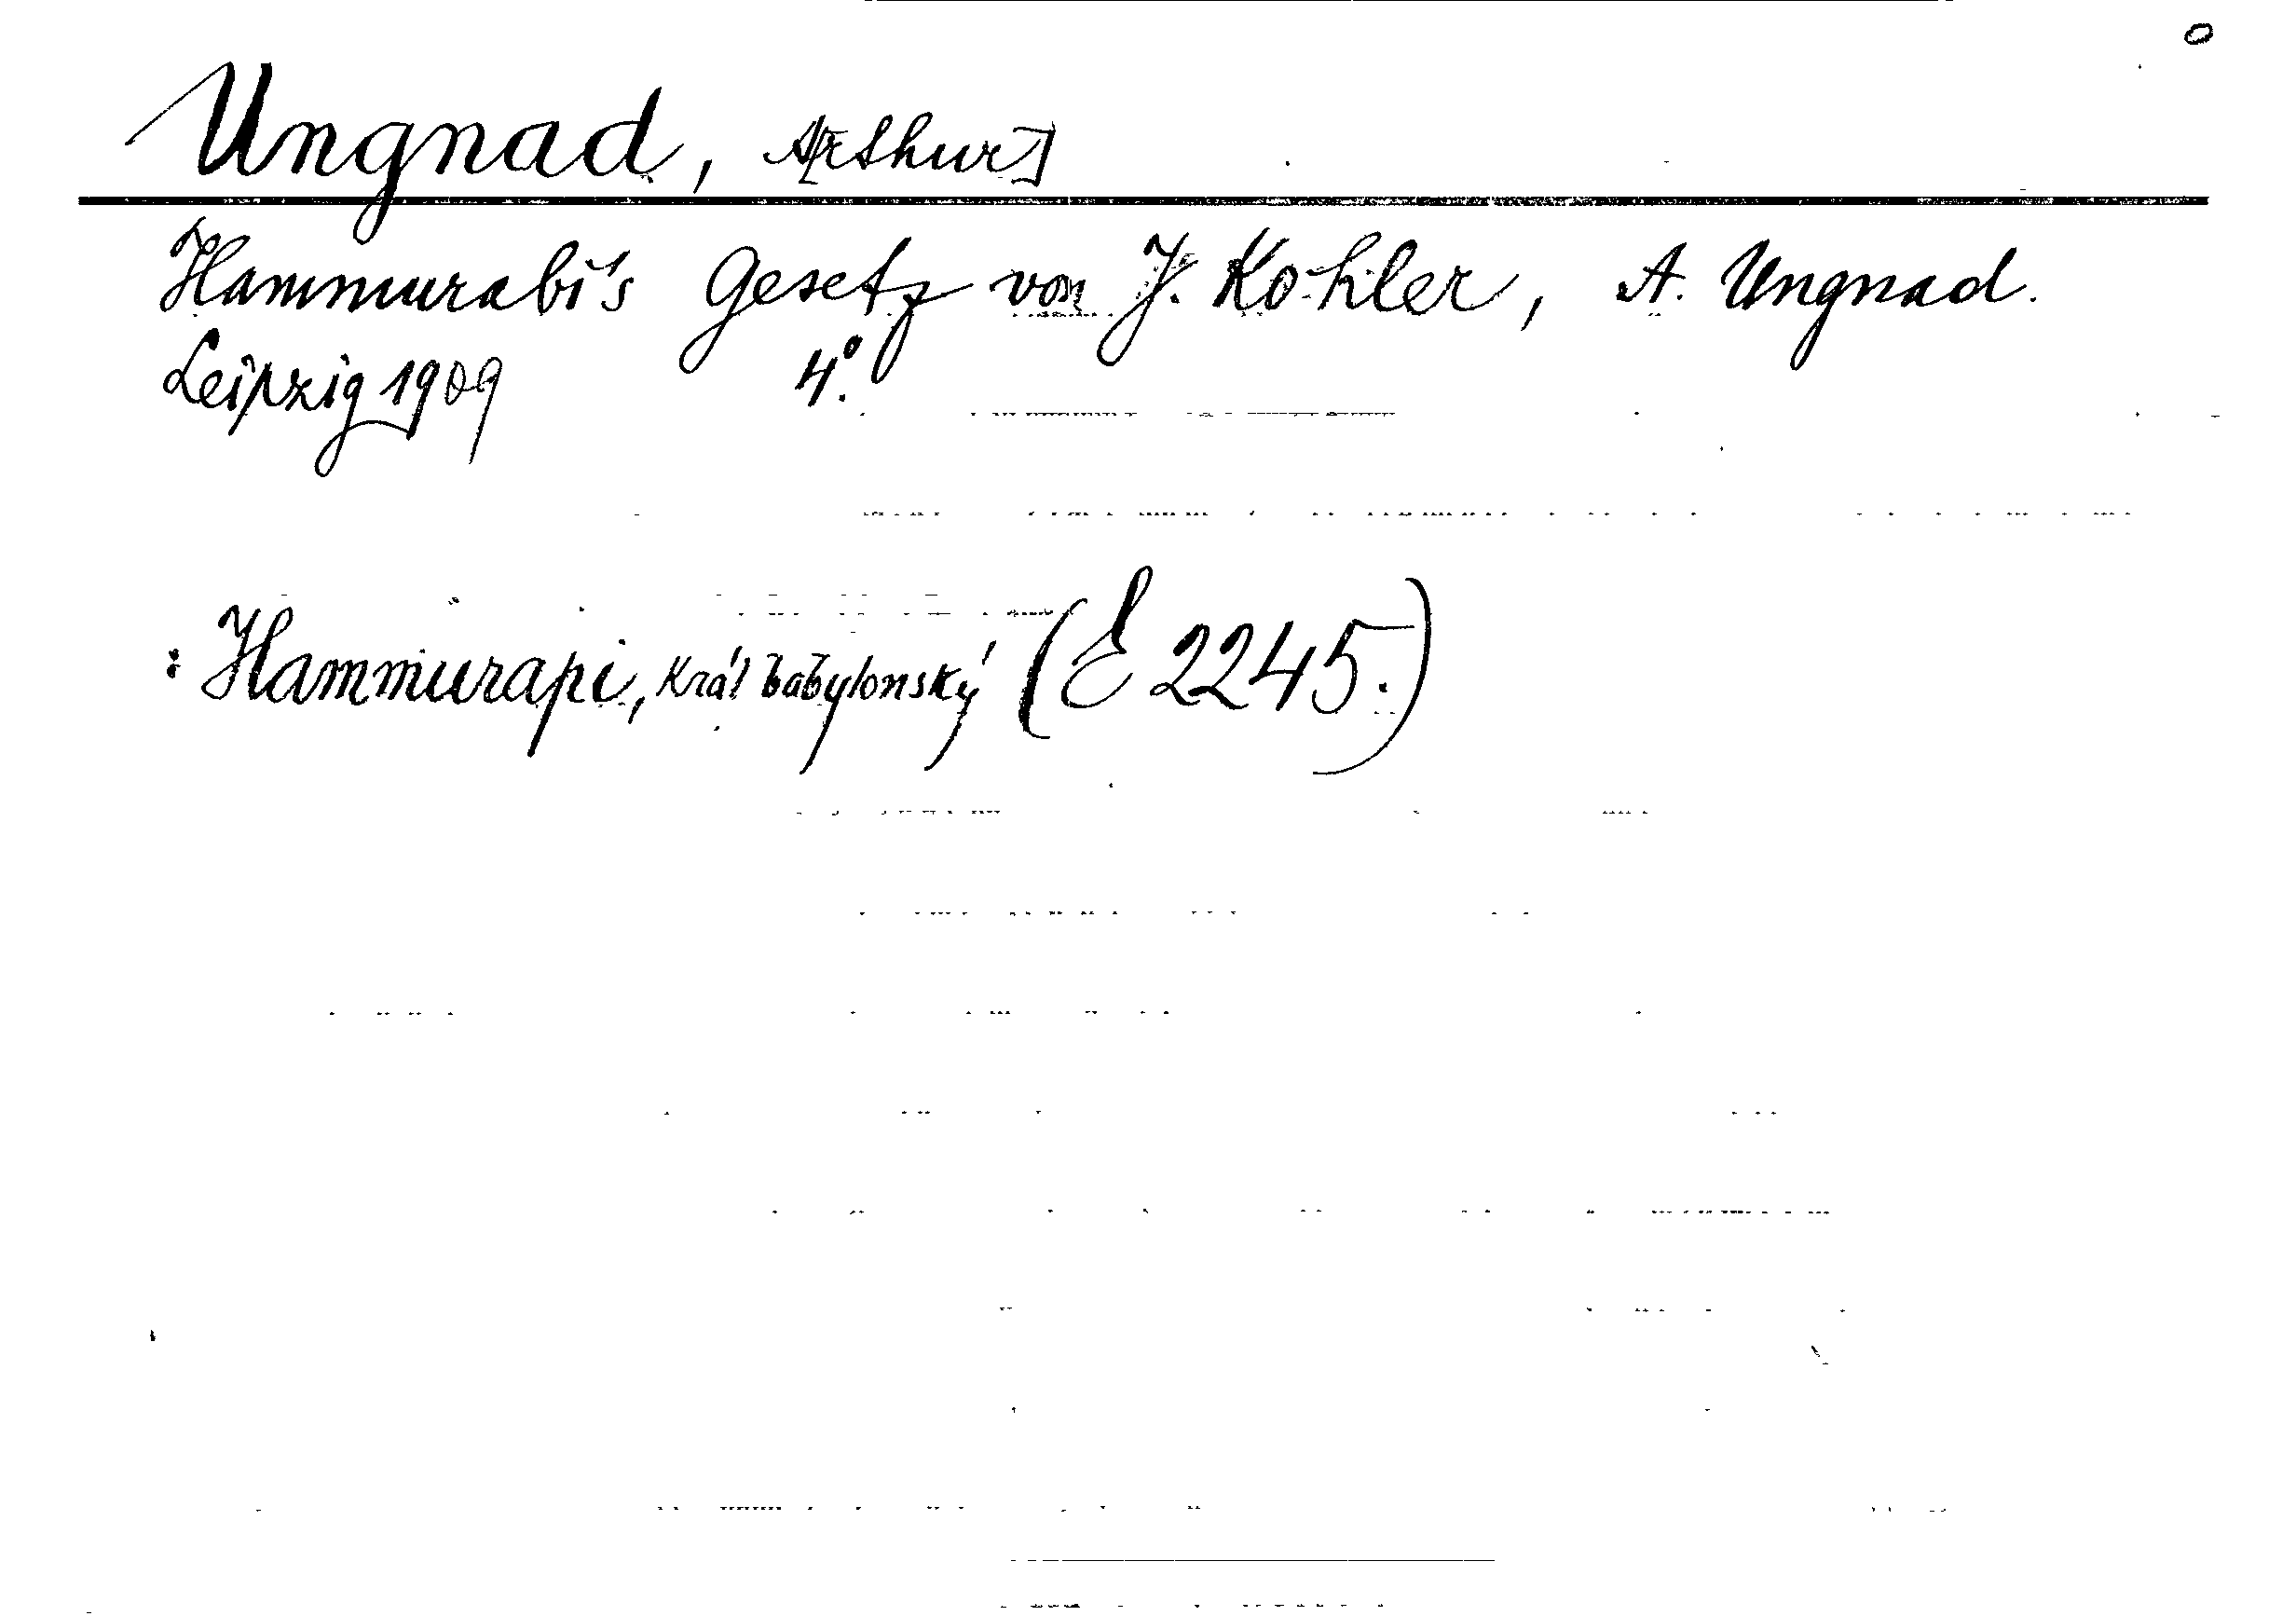 Ungnad, A[rthur]
Hammurabi's Gesetz von J. Kohler, A. Ungnad.
Leipzig 1909 4°.
: Hammurapi, král babylonský (E 2245.)